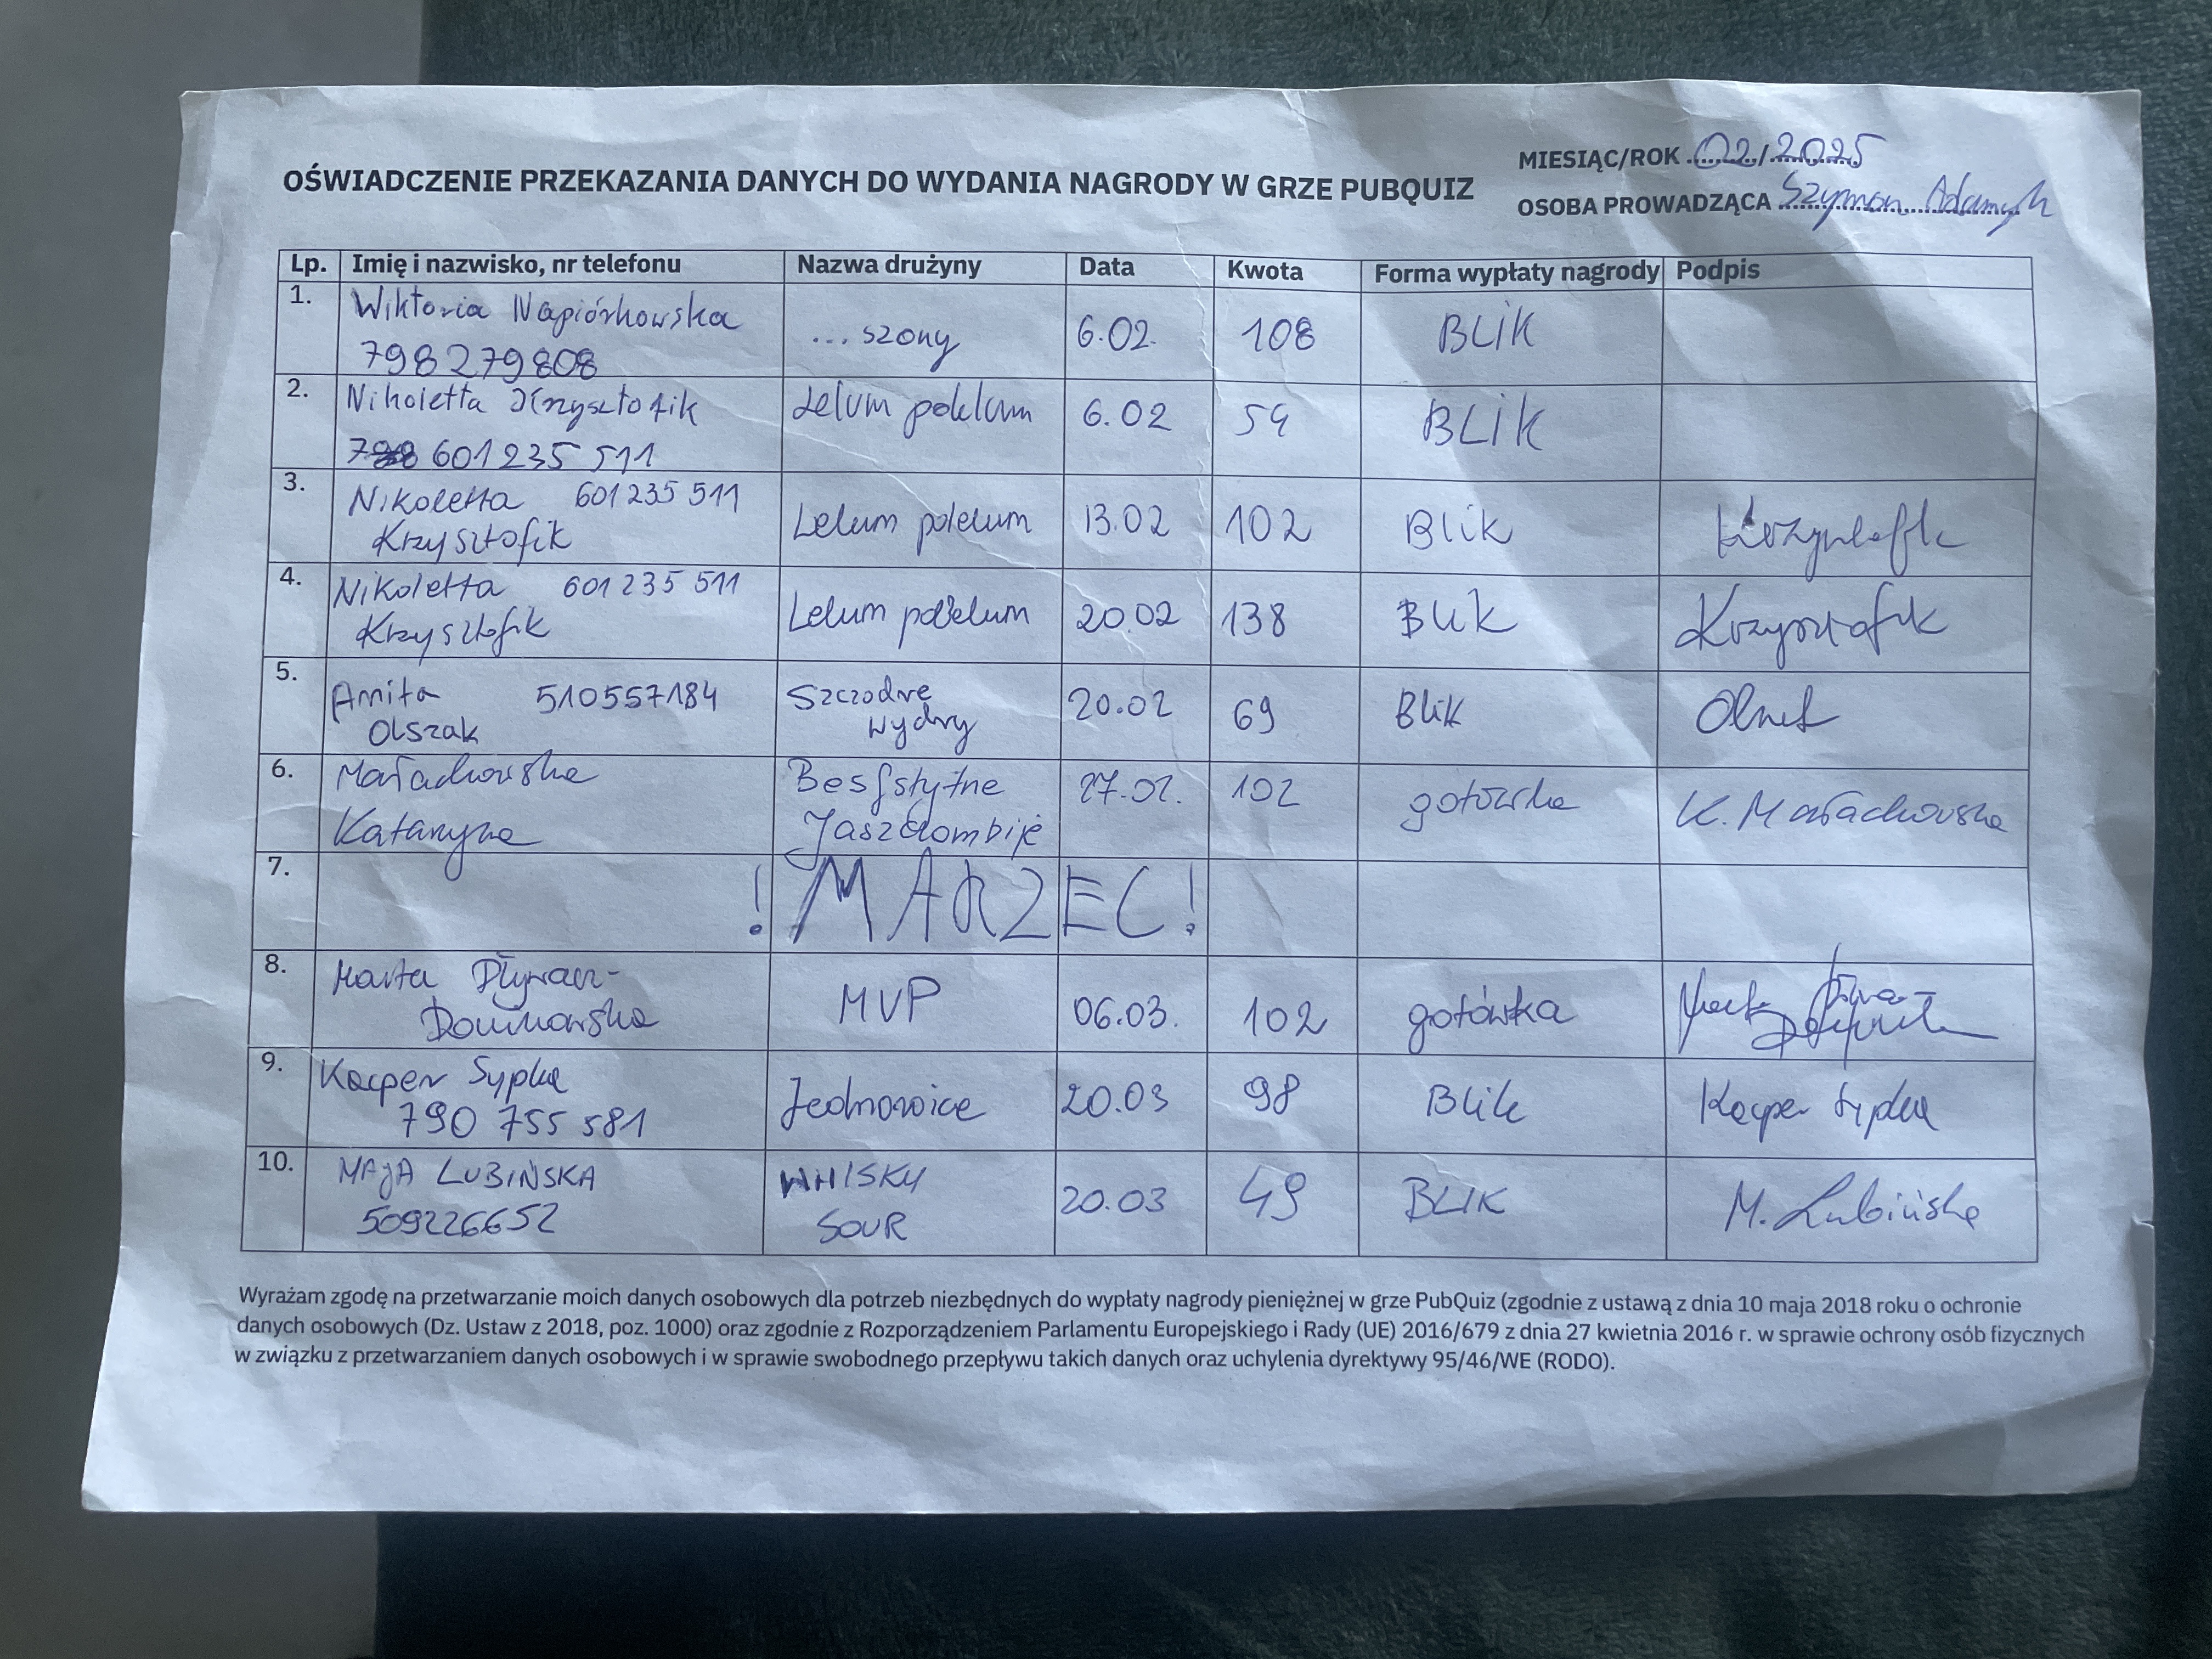 OŚWIADCZENIE PRZEKAZANIA DANYCH DO WYDANIA NAGRODY W GRZE PUBQUIZ
MIESIĄC/ROK 02/2025
OSOBA PROWADZĄCA Szymon
Lp. Imię i nazwisko, nr telefonu Nazwa drużyny Data Kwota Forma wypłaty nagrody Podpis
1. Wiktoria Napiórkowska ...szony 6.02. 108 BLIK
798279808
2. Nikoletta Krzysztofik Lelum polelum 6.02 54 BLIK
601235511
3. Nikoletta 601 235 511 Lelum polelum 13.02 102 Blik
Krzysztofik
4. Nikoletta 601 235 511 Lelum polelum 20.02 138 Blik Krzysztofik
Krzysztofik
5. Anita 510557184 Szczodre 20.02 69 Blik
Olszak wydry
6. Małachowska 27.02. 102 gotówka K. Małachowska
Katarzyna
7. ! MARZEC !
8. Marta MVP 06.03. 102 gotówka
9. Kacper Sypka 20.03 98 Blik Kacper Sypka
790 755 581
10. MAJA LUBIŃSKA WHISKY 20.03 49 BLIK M. Lubińska
509226652 SOUR
Wyrażam zgodę na przetwarzanie moich danych osobowych dla potrzeb niezbędnych do wypłaty nagrody pieniężnej w grze PubQuiz (zgodnie z ustawą z dnia 10 maja 2018 roku o ochronie
danych osobowych (Dz. Ustaw z 2018, poz. 1000) oraz zgodnie z Rozporządzeniem Parlamentu Europejskiego i Rady (UE) 2016/679 z dnia 27 kwietnia 2016 r. w sprawie ochrony osób fizycznych
w związku z przetwarzaniem danych osobowych i w sprawie swobodnego przepływu takich danych oraz uchylenia dyrektywy 95/46/WE (RODO).